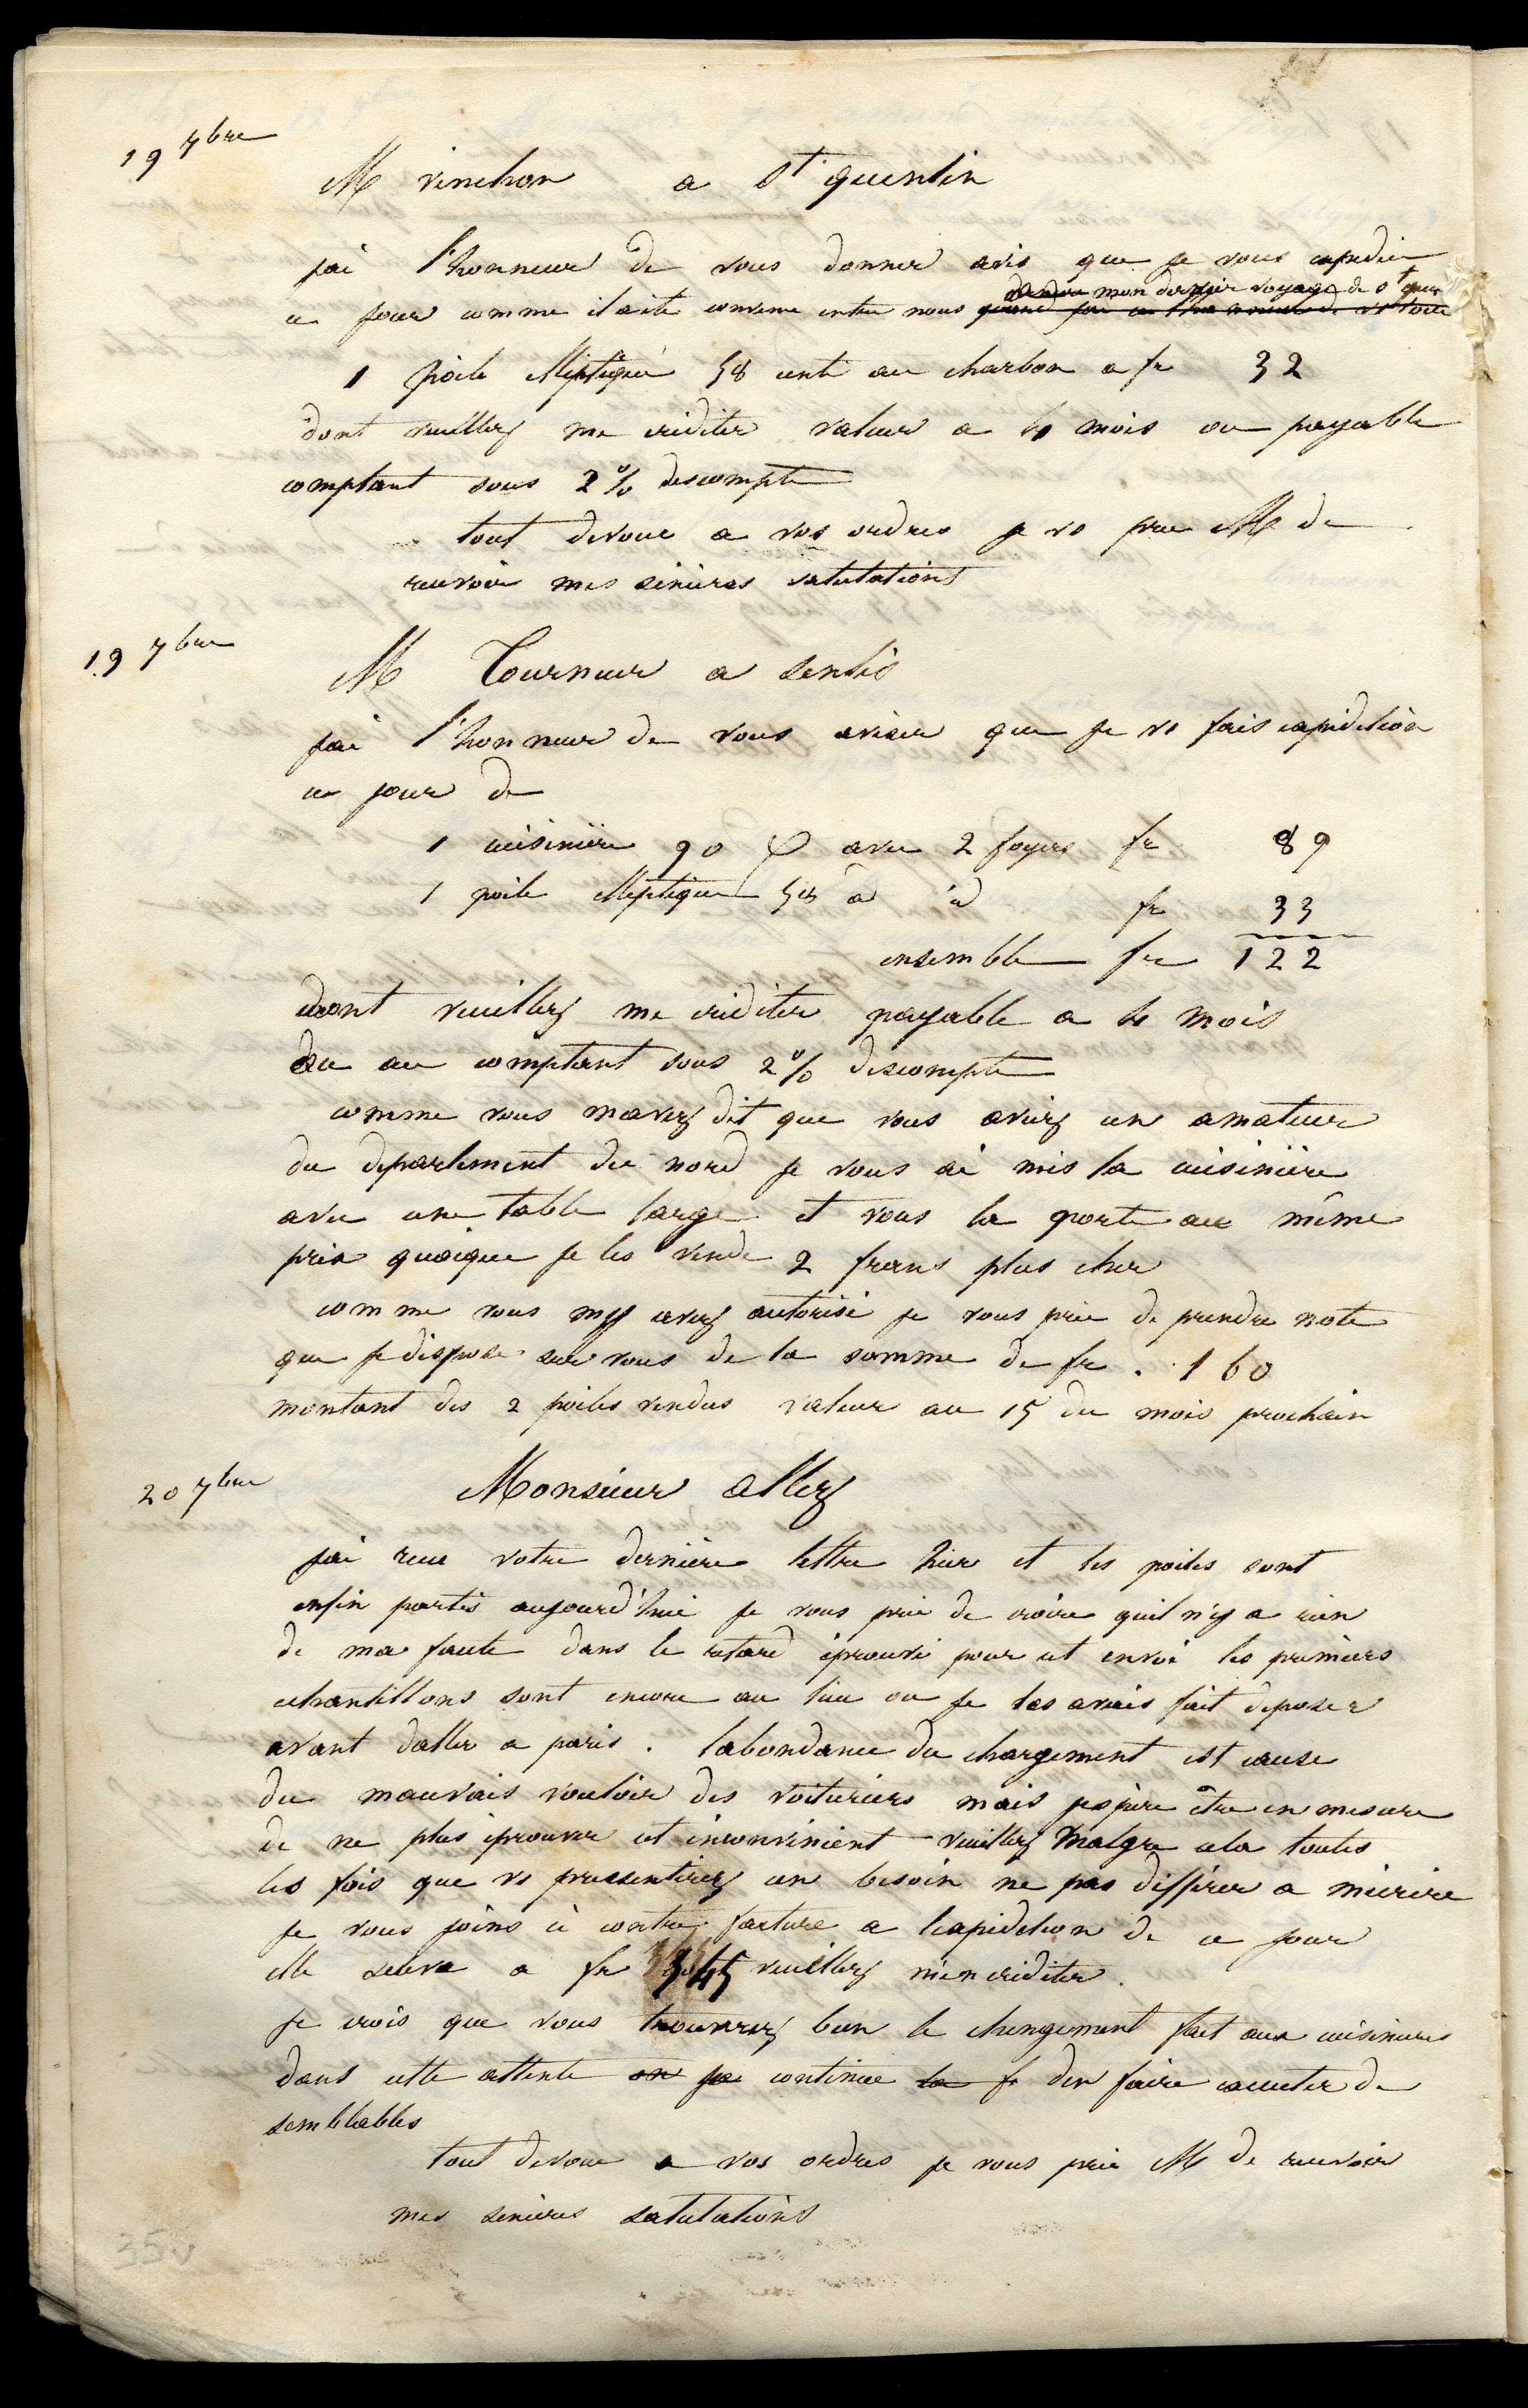 19 7bre
M vinchon a St quentin
jai l'honneur de vous donner avis que je vous expedie
ce jour comme il a ete convenu entre nous mon dernier voyage de St quen
1 poile elleptique 58 cent au charbon a fr 32
dont veuillez me crediter valeur a 4 mois ou payable
comptant sous 2% descompte
tout devoue a vos ordres je vs prie M de
recevoir mes sinceres salutations
19 7bre
M Tourneur a senlis
jai l'honneur de vous aviser que je vs fais expedition
ce jour de
1 cuisiniere 90 avec 2 foyers fr 89
1 poile elleptique 58 a id fr 33
ensemble fr 122
dont veuillez me crediter payable a 4 mois
ou au comptant sous 2% descompte
comme vous mavez dit que vous aviez un amateur
du departement du nord je vous ai mis la cuisiniere
avec une table large et vous la porte au même
prix quoique je les vende 2 frans plus cher
comme vous my avez autorisé je vous prie de prendre note
que je dispose sur vous de la somme de fr. 160
montant des 2 poiles vendus valeur au 15 du mois prochain
20 7bre
Monsieur allez
jai recu votre derniere lettre hier et les poiles sont
enfin partis aujourd'hui je vous prie de croire quil n'y a rien
de ma faute dans le retard éprouvé pour cet envoi les premiers
echantillons sont encore au lieu ou je les avais fait deposer
avant daller a paris. labondance du chargement est cause
du mauvais vouloir des voituriers mais jespere être en mesure
de ne plus eprouver cet inconvenient veuillez malgre cela toutes
les fois que vs pressentirez un besoin ne pas differer a mecrire
je vous joins ci contre facture a lexpedition de ce jour
elle seleve a fr 345 veuillez m'en crediter.
je crois que vous trouverez bon le changement fait aux cuisinieres
dans cette attente on je continue la je den faire executer de
semblables
tout devoue a vos ordres je vous prie M de recevoir
mes sinceres salutations
35v